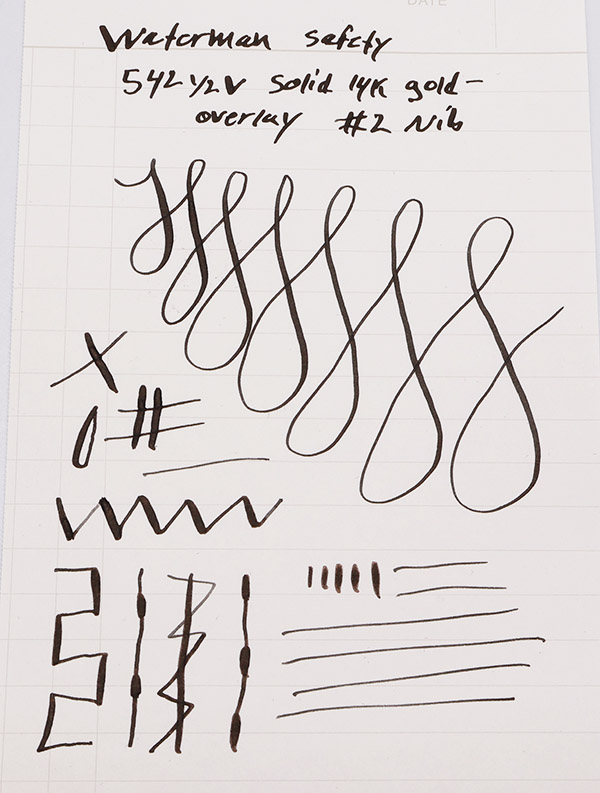 DATE
Waterman safety
542 1/2 V Solid 14K gold-
overlay #2 Nib
X
0 #